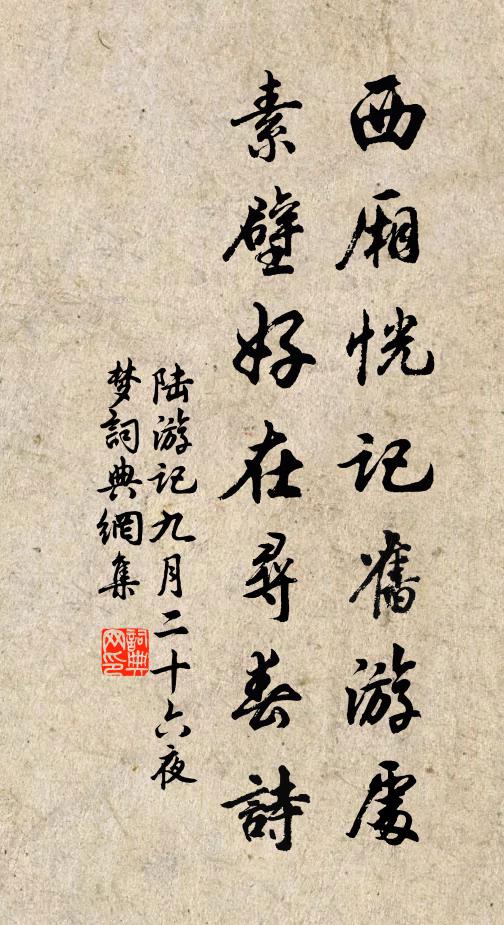 西厢恍记舊游處
素壁好在尋春詩
陆游记九月二十六夜
梦詞典網集
詞典网印